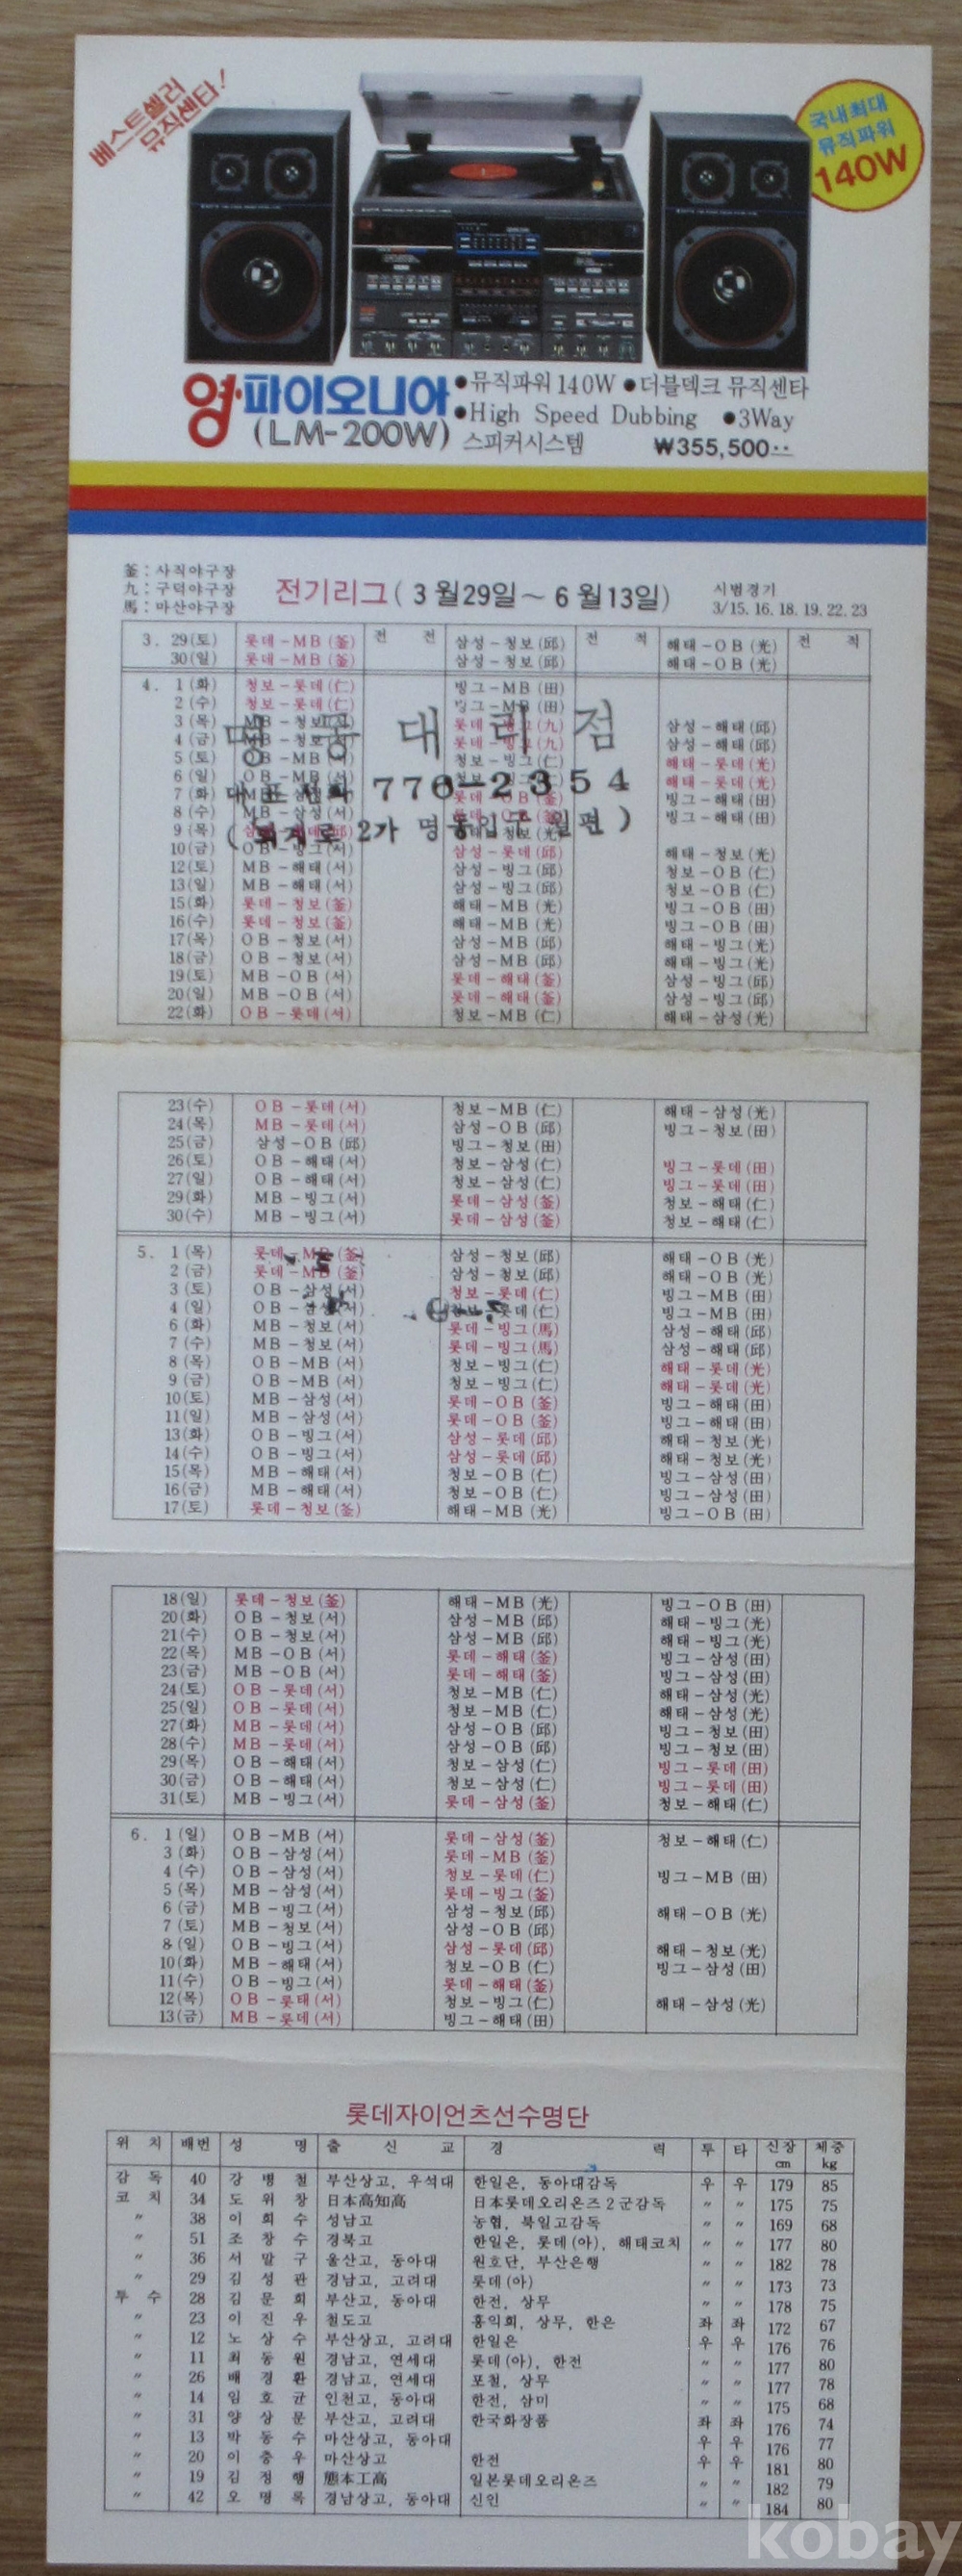 베스트셀러
뮤직센타!
국내최대
뮤직파워
140W
영·파이오니아
(LM-200W)
●뮤직파워 140W ●더블덱크 뮤직센타
●High Speed Dubbing ●3Way
스피커시스템 ₩355,500··
釜:사직야구장
九:구덕야구장
馬:마산야구장
전기리그(3월29일~6월13일)
시범경기
3/15.16.18.19.22.23
3. 29(토) 롯데-MB(釜) 전 전 삼성-청보(邱) 전 적 해태-OB(光) 전 적
30(일) 롯데-MB(釜) 삼성-청보(邱) 해태-OB(光)
4. 1(화) 청보-롯데(仁) 빙그-MB(田)
2(수) 청보-롯데(仁) 빙그-MB(田)
3(목) MB-청보 롯데 (九) 삼성-해태(邱)
4(금) MB-청보 롯데-빙그(九) 삼성-해태(邱)
5(토) OB-MB(서) 청보-빙그(仁) 해태-롯데(光)
6(일) OB-MB(서) 해태-롯데(光)
7(화) 롯데-OB(釜) 빙그-해태(田)
8(수) MB-삼성(서) 빙그-해태(田)
9(목)
대리점
776-2354
(퇴계로 2가 명동입구 편)
10(금) OB-빙그(서) 삼성-롯데(邱) 해태-청보(光)
12(토) MB-해태(서) 삼성-빙그(邱) 청보-OB(仁)
13(일) MB-해태(서) 삼성-빙그(邱) 청보-OB(仁)
15(화) 롯데-청보(釜) 해태-MB(光) 빙그-OB(田)
16(수) 롯데-청보(釜) 해태-MB(光) 빙그-OB(田)
17(목) OB-청보(서) 삼성-MB(邱) 해태-빙그(光)
18(금) OB-청보(서) 삼성-MB(邱) 해태-빙그(光)
19(토) MB-OB(서) 롯데-해태(釜) 삼성-빙그(邱)
20(일) MB-OB(서) 롯데-해태(釜) 삼성-빙그(邱)
22(화) OB-롯데(서) 청보-MB(仁) 해태-삼성(光)
23(수) OB-롯데(서) 청보-MB(仁) 해태-삼성(光)
24(목) MB-롯데(서) 삼성-OB(邱) 빙그-청보(田)
25(금) 삼성-OB(邱) 빙그-청보(田)
26(토) OB-해태(서) 청보-삼성(仁) 빙그-롯데(田)
27(일) OB-해태(서) 청보-삼성(仁) 빙그-롯데(田)
29(화) MB-빙그(서) 롯데-삼성(釜) 청보-해태(仁)
30(수) MB-빙그(서) 롯데-삼성(釜) 청보-해태(仁)
5. 1(목) 롯데-MB(釜) 삼성-청보(邱) 해태-OB(光)
2(금) 롯데-MB(釜) 삼성-청보(邱) 해태-OB(光)
3(토) OB-삼성(서) 청보-롯데(仁) 빙그-MB(田)
4(일) OB-삼성(서) 청보-롯데(仁) 빙그-MB(田)
6(화) MB-청보(서) 롯데-빙그(馬) 삼성-해태(邱)
7(수) MB-청보(서) 롯데-빙그(馬) 삼성-해태(邱)
8(목) OB-MB(서) 청보-빙그(仁) 해태-롯데(光)
9(금) OB-MB(서) 청보-빙그(仁) 해태-롯데(光)
10(토) MB-삼성(서) 롯데-OB(釜) 빙그-해태(田)
11(일) MB-삼성(서) 롯데-OB(釜) 빙그-해태(田)
13(화) OB-빙그(서) 삼성-롯데(邱) 해태-청보(光)
14(수) OB-빙그(서) 삼성-롯데(邱) 해태-청보(光)
15(목) MB-해태(서) 청보-OB(仁) 빙그-삼성(田)
16(금) MB-해태(서) 청보-OB(仁) 빙그-삼성(田)
17(토) 롯데-청보(釜) 해태-MB(光) 빙그-OB(田)
18(일) 롯데-청보(釜) 해태-MB(光) 빙그-OB(田)
20(화) OB-청보(서) 삼성-MB(邱) 해태-빙그(光)
21(수) OB-청보(서) 삼성-MB(邱) 해태-빙그(光)
22(목) MB-OB(서) 롯데-해태(釜) 빙그-삼성(田)
23(금) MB-OB(서) 롯데-해태(釜) 빙그-삼성(田)
24(토) OB-롯데(서) 청보-MB(仁) 해태-삼성(光)
25(일) OB-롯데(서) 청보-MB(仁) 해태-삼성(光)
27(화) MB-롯데(서) 삼성-OB(邱) 빙그-청보(田)
28(수) MB-롯데(서) 삼성-OB(邱) 빙그-청보(田)
29(목) OB-해태(서) 청보-삼성(仁) 빙그-롯데(田)
30(금) OB-해태(서) 청보-삼성(仁) 빙그-롯데(田)
31(토) MB-빙그(서) 롯데-삼성(釜) 청보-해태(仁)
6. 1(일) OB-MB(서) 롯데-삼성(釜) 청보-해태(仁)
3(화) OB-삼성(서) 롯데-MB(釜)
4(수) OB-삼성(서) 청보-롯데(仁) 빙그-MB(田)
5(목) MB-삼성(서) 롯데-빙그(釜)
6(금) MB-빙그(서) 삼성-청보(邱) 해태-OB(光)
7(토) MB-청보(서) 삼성-OB(邱)
8(일) OB-빙그(서) 삼성-롯데(邱) 해태-청보(光)
10(화) MB-해태(서) 청보-OB(仁) 빙그-삼성(田)
11(수) OB-빙그(서) 롯데-해태(釜)
12(목) OB-롯태(서) 청보-빙그(仁) 해태-삼성(光)
13(금) MB-롯데(서) 빙그-해태(田)
롯데자이언츠선수명단
위 치 배번 성 명 출 신 교 경 력 투 타 신장cm 체중kg
감 독 40 강 병 철 부산상고, 우석대 한일은, 동아대감독 우 우 179 85
코 치 34 도 위 창 日本高知高 日本롯데오리온즈2군감독 〃 〃 175 75
〃 38 이 희 수 성남고 농협, 북일고감독 〃 〃 169 68
〃 51 조 창 수 경북고 한일은, 롯데(아), 해태코치 〃 〃 177 80
〃 36 서 말 구 울산고, 동아대 원호단, 부산은행 〃 〃 182 78
〃 29 김 성 관 경남고, 고려대 롯데(아) 〃 〃 173 73
투 수 28 김 문 희 부산고, 동아대 한전, 상무 〃 〃 178 75
〃 23 이 진 우 철도고 홍익회, 상무, 한은 좌 좌 172 67
〃 12 노 상 수 부산상고, 고려대 한일은 우 우 176 76
〃 11 최 동 원 경남고, 연세대 롯데(아), 한전 〃 〃 177 80
〃 26 배 경 환 경남고, 연세대 포철, 상무 〃 〃 177 78
〃 14 임 호 균 인천고, 동아대 한전, 삼미 〃 〃 175 68
〃 31 양 상 문 부산고, 고려대 한국화장품 좌 좌 176 74
〃 13 박 동 수 마산상고, 동아대 우 우 176 77
〃 20 이 충 우 마산상고 한전 우 우 181 80
〃 19 김 정 행 態本工高 일본롯데오리온즈 〃 〃 182 79
〃 42 오 명 록 경남상고, 동아대 신인 〃 〃 184 80
kobay